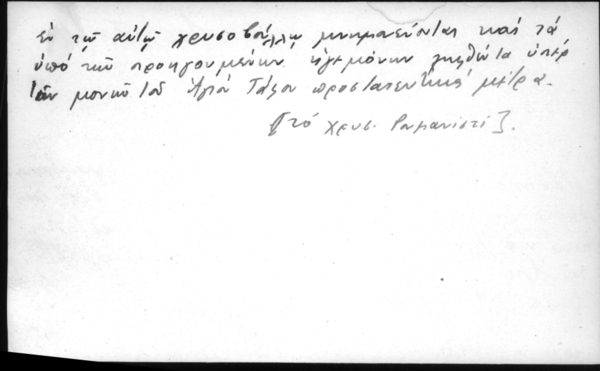 ἐν τῷ αὐτῷ χρυσοβούλλῳ μνημονεύονται καὶ τὰ
ὑπὸ τῶν προηγουμένων ἡγεμόνων ληφθέντα ὑπὲρ
τῶν μονῶν τοῦ Ἁγίου Τάφου προστατευτικά μέτρα.
[τό χρυσ. Ρουμανιστί].